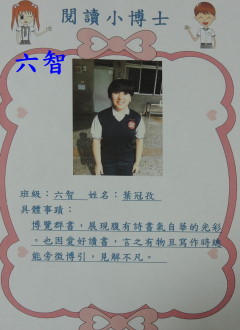 閱讀小博士
六智
班級：六智　姓名：葉冠孜
具體事蹟：
博覽群書，展現腹有詩書氣自華的光彩
。也因愛好讀書，言之有物且寫作時總
能旁徵博引，見解不凡。